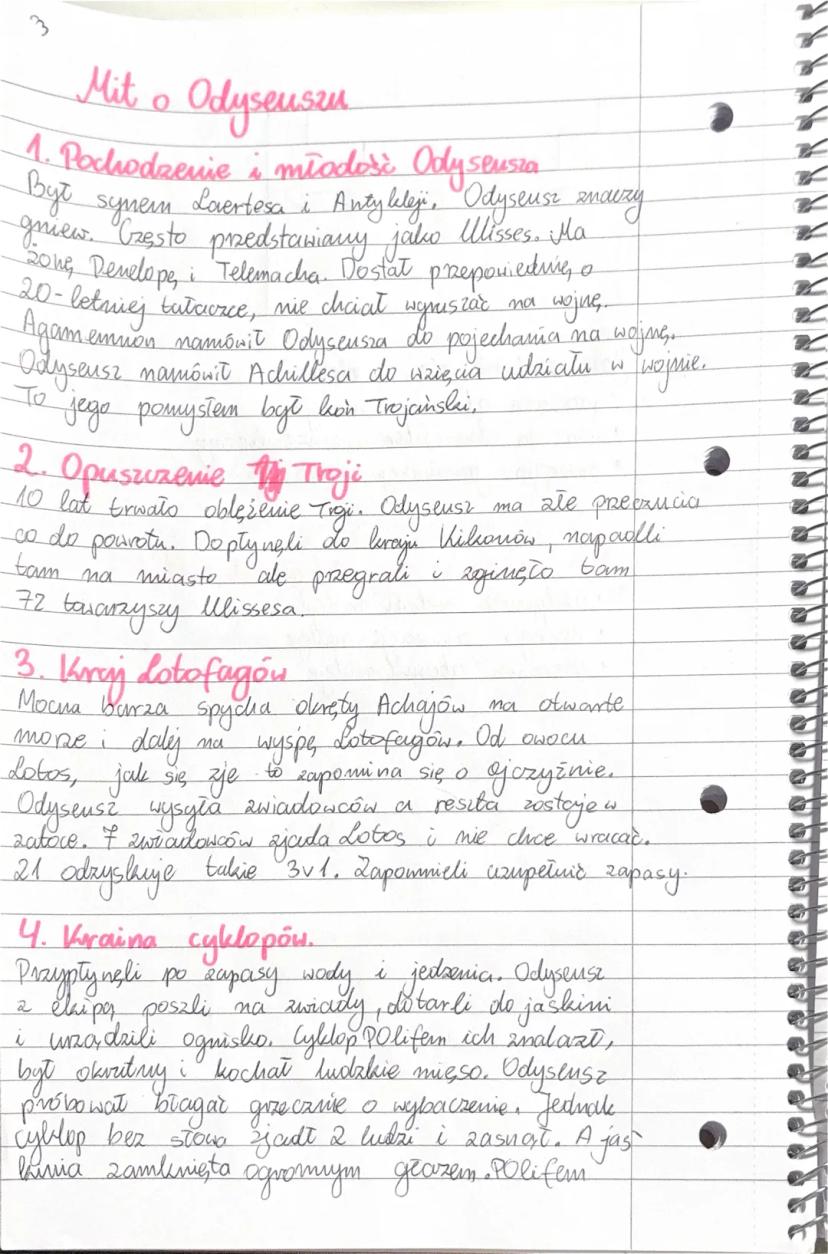 3
Mit o Odyseuszu
1. Pochodzenie i młodość Odyseusza
Był synem Laertesa i Antykleji. Odyseusz znaczy
gniew. Często przedstawiany jako Ulisses. Ma
żonę Penelopę i Telemacha. Dostał przepowiednię o
20-letniej tułaczce, nie chciał wyruszać na wojnę.
Agamemnon namówił Odyseusza do pojechania na wojnę.
Odyseusz namówił Achillesa do wzięcia udziału w wojnie.
To jego pomysłem był koń Trojański.
2. Opuszczenie Troji
10 lat trwało oblężenie Troji. Odyseusz ma złe przeczucia
co do powrotu. Dopłynęli do kraju Kikonów, napadli
tam na miasto ale przegrali i zginęło tam
72 towarzyszy Ulissesa.
3. Kraj Lotofagów
Mocna burza spycha okręty Achajów na otwarte
morze i dalej na wyspę Lotofagów. Od owocu
Lotos, jak się zje to zapomina się o ojczyźnie.
Odyseusz wysyła zwiadowców a reszta zostaje w
zatoce. 7 zwiadowców zjada Lotos i nie chce wracać.
21 odzyskuje takie 3v1. Zapomnieli uzupełnić zapasy.
4. Kraina cyklopów.
Przypłynęli po zapasy wody i jedzenia. Odyseusz
z ekipą poszli na zwiady, dotarli do jaskini
i urządzili ognisko. Cyklop POlifem ich znalazł,
był okrutny i kochał ludzkie mięso. Odyseusz
próbował błagać grzecznie o wybaczenie. Jednak
cyklop bez słowa zjadł 2 ludzi i zasnął. A jas
kinia zamknięta ogromnym głazem. POlifem